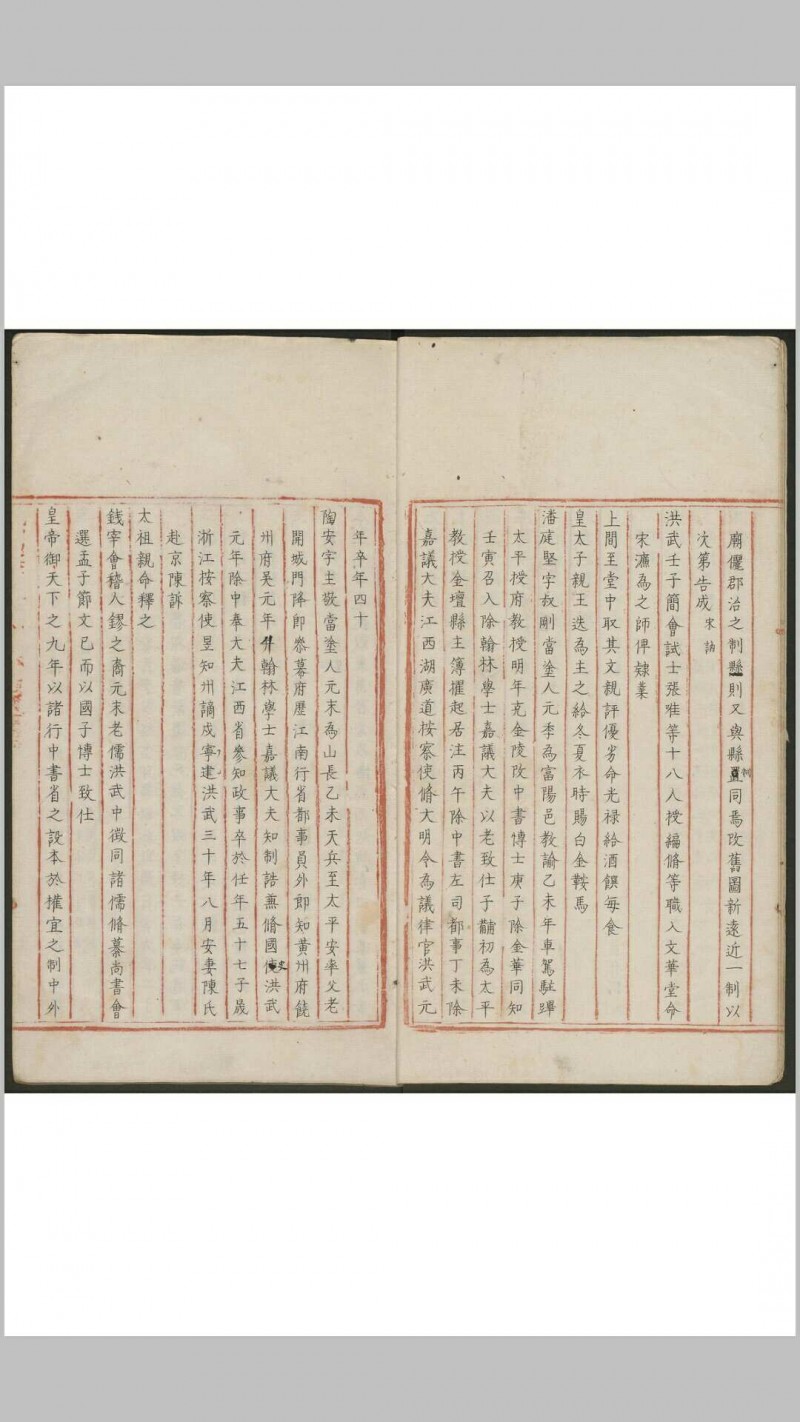 廟僊郡治之制縣則又與縣同焉攺舊圖新遠近一制以
次第告成宋訥
洪武壬子簡會試士張唯等十八人授編脩等職入文華堂命
宋濂為之師俾隸業
上間至堂中取其文親評優劣命光禄給酒饌每食
皇太子親王迭為主之給冬夏衣時賜白金鞍馬
潘庭堅字叔剛當塗人元季為富陽邑教諭乙未年車駕駐蹕
太平授府教授明年克金陵攺中書博士庚子除金華同知
壬寅召入除翰林學士嘉議大夫以老致仕子黼初為太平
教授金壇縣主簿擢起居注丙午除中書左司都事丁未除
嘉議大夫江西湖廣道按察使脩大明令為議律官洪武元
年卒年四十
陶安字主敬當塗人元末為山長乙未天兵至太平安率父老
開城門降即叅幕府歷江南行省都事員外郎知黄州府饒
州府吴元年陞翰林學士嘉議大夫知制誥兼脩國史洪武
元年除中奉大夫江西省參知政事卒於任年五十七子晟
浙江按察使昱知州謫戍寧建洪武三十年八月安妻陳氏
赴京陳訴
太祖親命釋之
錢宰會稽人鏐之裔元末老儒洪武中徵同諸儒脩纂尚書會
選孟子節文已而以國子博士致仕
皇帝御天下之九年以諸行中書省之設本於權宜之制中外